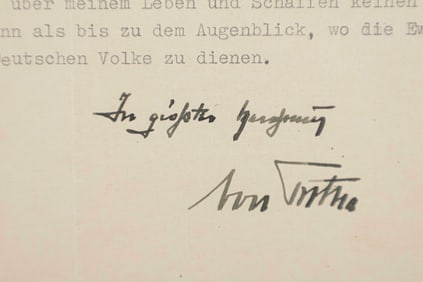 über meinem Leben und Schaffen keinen
nn als bis zu dem Augenblick, wo die Ew
Deutschen Volke zu dienen.
In größter Verehrung
von Trotha